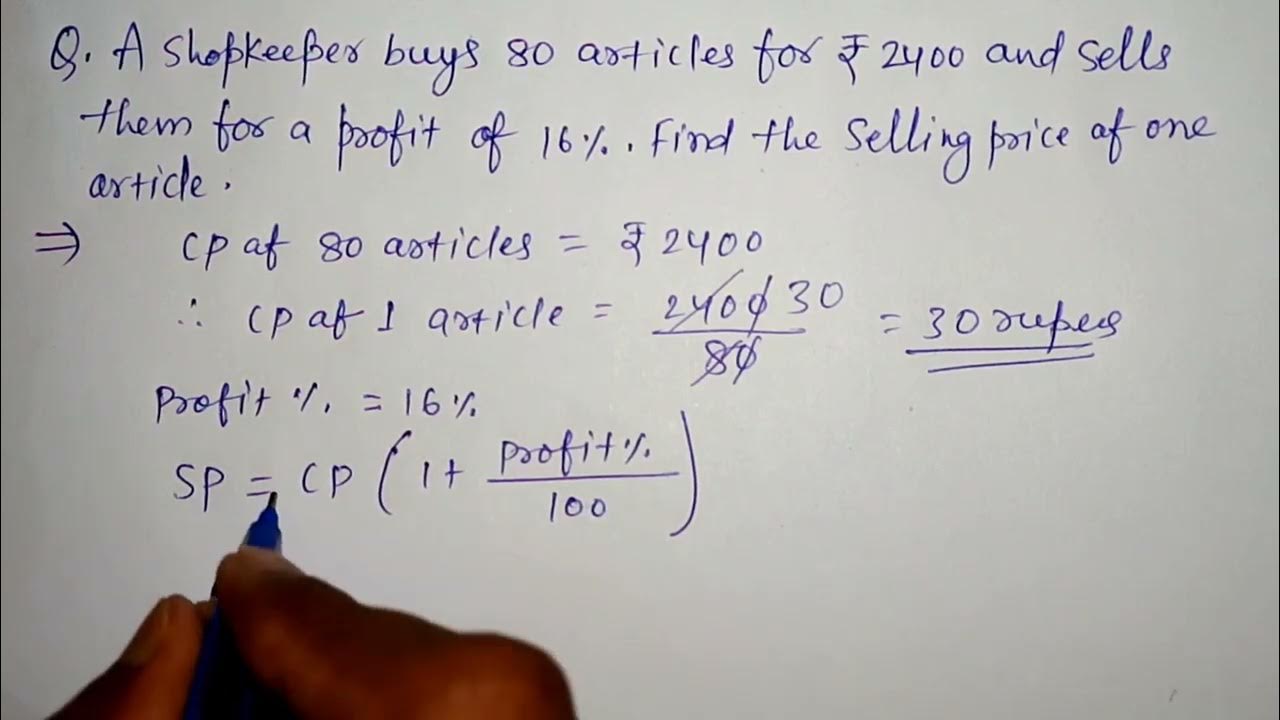 Q. A Shopkeeper buys 80 articles for ₹ 2400 and sells
them for a profit of 16%. Find the Selling price of one
article.
⇒ CP of 80 articles = ₹ 2400
∴ CP of 1 article = 2400/80 30 = 30 rupees
Profit % = 16%
SP = CP (1 + Profit%/100)